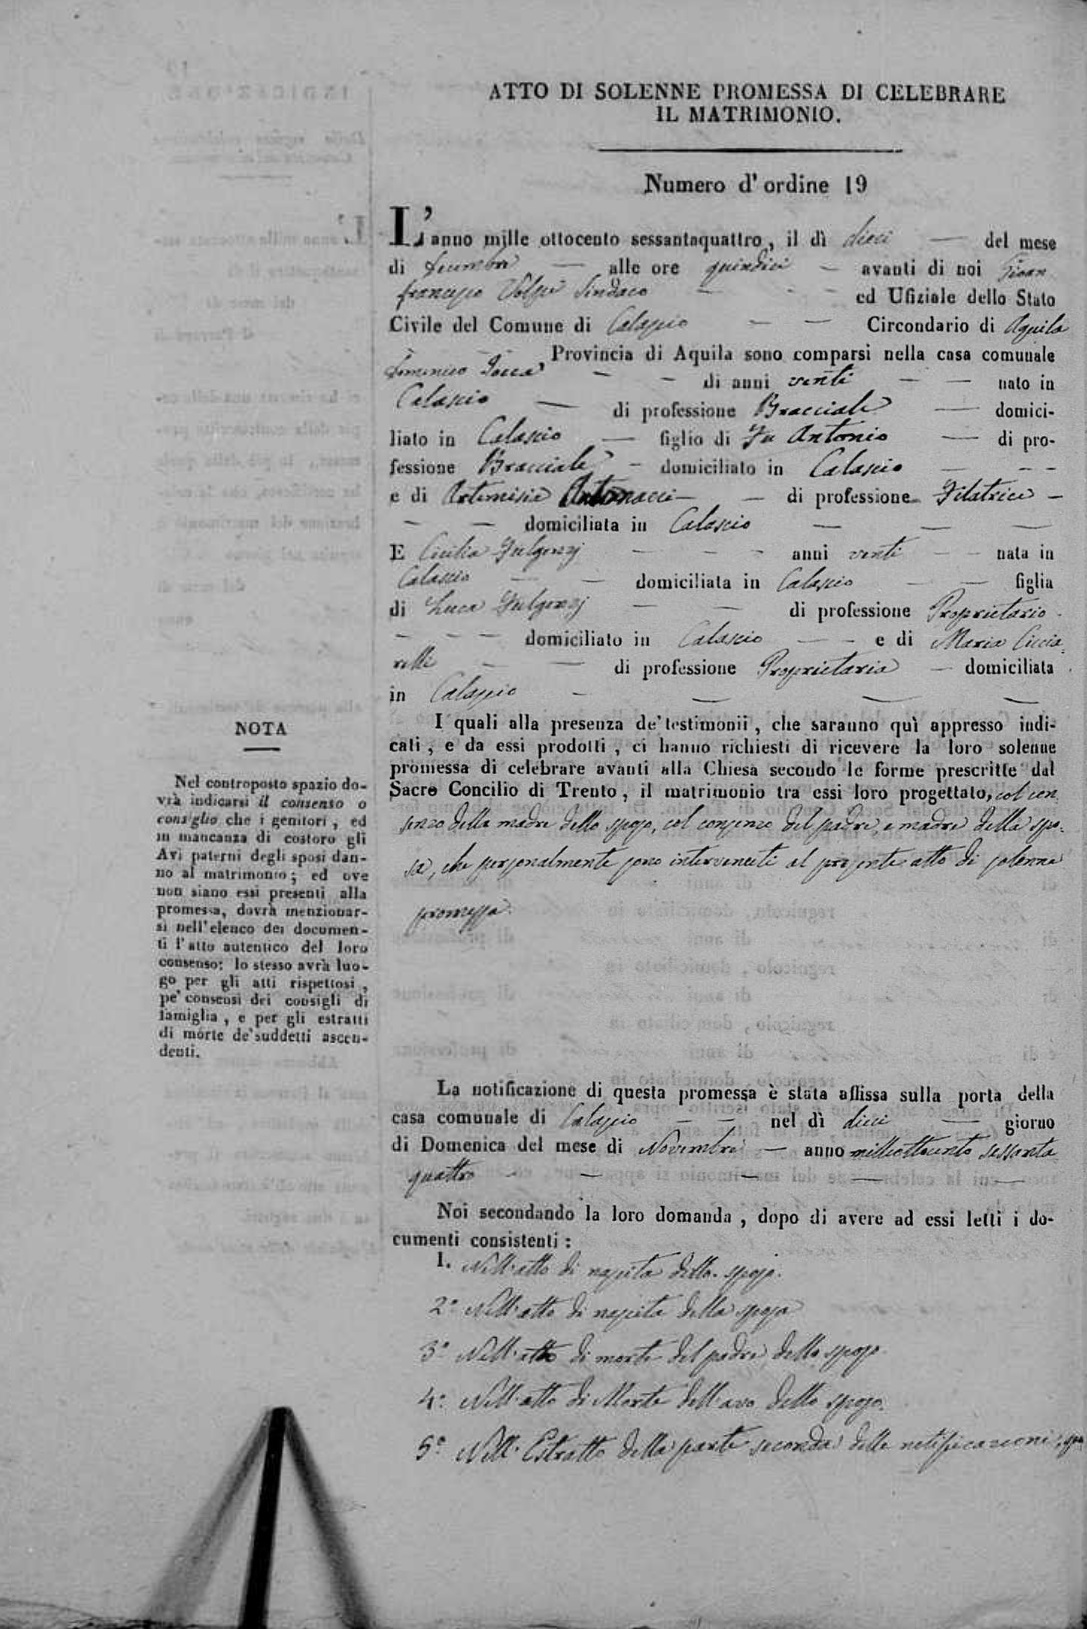 ATTO DI SOLENNE PROMESSA DI CELEBRARE
IL MATRIMONIO.
Numero d' ordine 19
L'anno mille ottocento sessantaquattro, il dì dieci — del mese
di Decembre — alle ore quindici — avanti di noi Gioan
francesco Volpe Sindaco — — — ed Ufiziale dello Stato
Civile del Comune di Calascio — — Circondario di Aquila
Provincia di Aquila sono comparsi nella casa comunale
Domenico — — di anni venti — — nato in
Calascio — di professione Bracciale — domici-
liato in Calascio — figlio di Fu Antonio — di pro-
fessione Bracciale — domiciliato in Calascio — — —
e di Artemisia Antonacci — — di professione Filatrice —
— — domiciliata in Calascio — — —
E Cicilia Fulgenzj — — — anni venti — — nata in
Calascio — — domiciliata in Calascio — — figlia
di Luca Fulgenzj — — di professione Proprietario
— — — domiciliato in Calascio — — e di Maria Ciccia-
relli — — di professione Proprietaria — domiciliata
in Calascio — — — —
I quali alla presenza de' testimonii, che saranno quì appresso indi-
cati, e da essi prodotti, ci hanno richiesti di ricevere la loro solenne
promessa di celebrare avanti alla Chiesa secondo le forme prescritte dal
Sacro Concilio di Trento, il matrimonio tra essi loro progettato, col con
senzo della madre dello sposo, col consenzo del padre, e madre della spo-
sa, che personalmente sono intervenuti al presente atto di solenne
promessa.
NOTA
Nel controposto spazio do-
vrà indicarsi il consenso o
consiglio che i genitori, ed
in mancanza di costoro gli
Avi paterni degli sposi dan-
no al matrimonio; ed ove
non siano essi presenti alla
promessa, dovrà menzionar-
si nell'elenco dei documen-
ti l'atto autentico del loro
consenso: lo stesso avrà luo-
go per gli atti rispettosi,
pe' consensi dei consigli di
famiglia, e per gli estratti
di morte de' suddetti ascen-
denti.
La notificazione di questa promessa è stata affissa sulla porta della
casa comunale di Calascio — — nel dì dieci — giorno
di Domenica del mese di Novembre — anno milleottocento sessanta
quattro — — — —
Noi secondando la loro domanda, dopo di avere ad essi letti i do-
cumenti consistenti:
1. Nell'atto di nascita dello sposo.
2.° Nell'atto di nascita della sposa
3.° Nell'atto di morte del padre dello sposo
4.° Nell'atto di Morte dell'avo dello sposo.
5.° Nell'Estratto della parte seconda delle notificazioni,